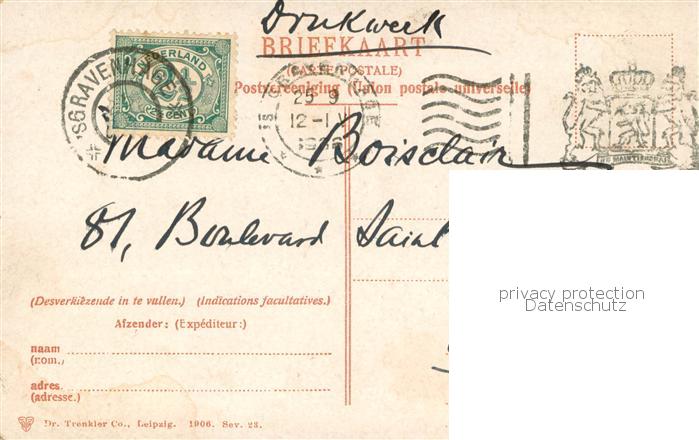 Drukwerk
BRIEFKAART
(CARTE POSTALE)
Postvereeniging (Union postale universelle)
NEDERLAND
'SGRAVENHAGE
25 9
12-1 N
Madame Boisclair
81, Boulevard Saint
privacy protection
Datenschutz
(Desverkiezende in te vullen.) (Indications facultatives.)
Afzender: (Expéditeur:)
naam
(nom.)
adres.
(adresse.)
Dr. Trenkler Co., Leipzig. 1906. Sev. 23.